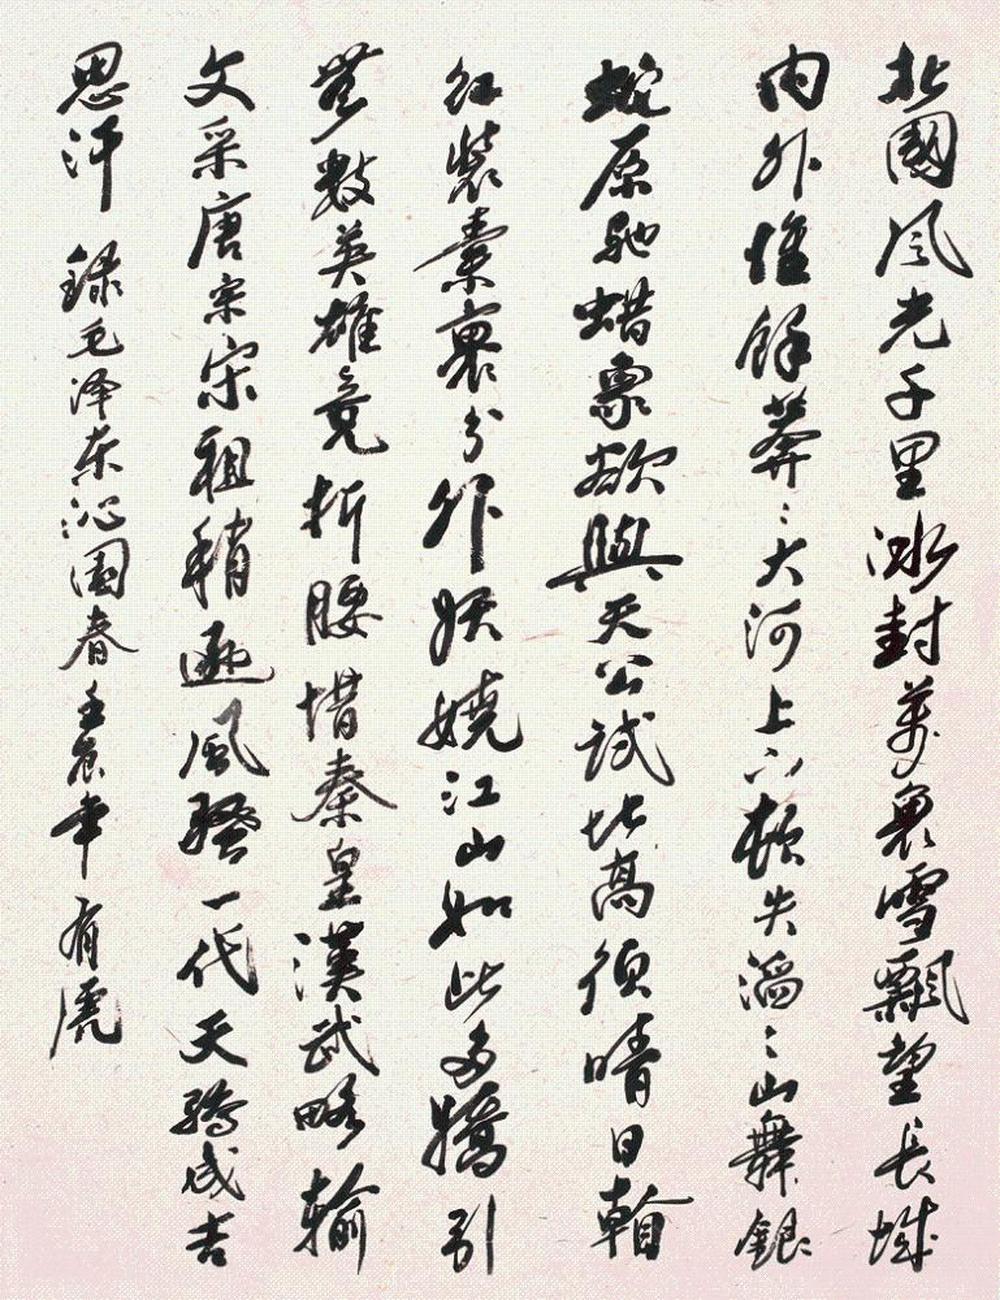 北國風光千里冰封萬裏雪飄望長城
內外惟餘莽〻大河上下頓失滔〻山舞銀
蛇原馳蜡象欲與天公試比高須晴日看
紅裝素裹分外妖嬈江山如此多嬌引
無數英雄竞折腰惜秦皇漢武略輸
文采唐宗宋祖稍遜風騷一代天驕成吉
思汗 録毛泽东沁園春壬辰年 有虎